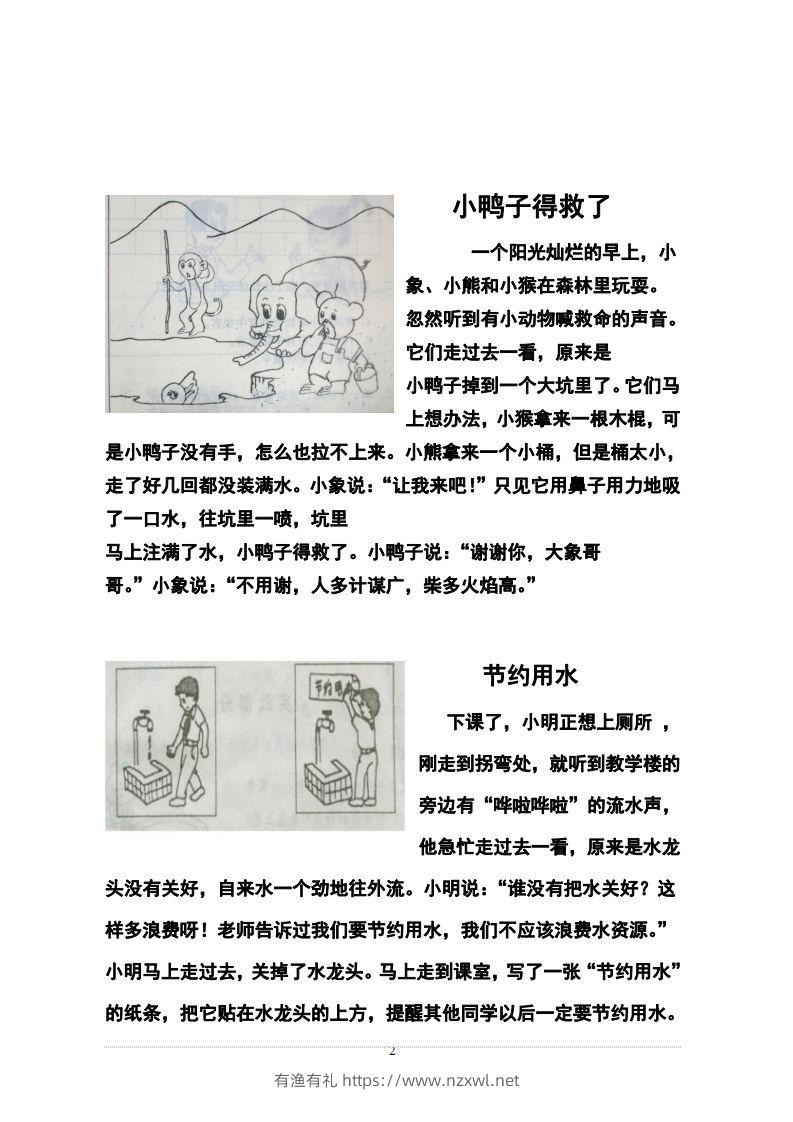 小鸭子得救了
一个阳光灿烂的早上，小
象、小熊和小猴在森林里玩耍。
忽然听到有小动物喊救命的声音。
它们走过去一看，原来是
小鸭子掉到一个大坑里了。它们马
上想办法，小猴拿来一根木棍，可
是小鸭子没有手，怎么也拉不上来。小熊拿来一个小桶，但是桶太小，
走了好几回都没装满水。小象说：“让我来吧！”只见它用鼻子用力地吸
了一口水，往坑里一喷，坑里
马上注满了水，小鸭子得救了。小鸭子说：“谢谢你，大象哥
哥。”小象说：“不用谢，人多计谋广，柴多火焰高。”
节约用水
节约用水
下课了，小明正想上厕所 ，
刚走到拐弯处，就听到教学楼的
旁边有“哗啦哗啦”的流水声，
他急忙走过去一看，原来是水龙
头没有关好，自来水一个劲地往外流。小明说：“谁没有把水关好？这
样多浪费呀！老师告诉过我们要节约用水，我们不应该浪费水资源。”
小明马上走过去，关掉了水龙头。马上走到课室，写了一张“节约用水”
的纸条，把它贴在水龙头的上方，提醒其他同学以后一定要节约用水。
2
有渔有礼 https://www.nzxwl.net